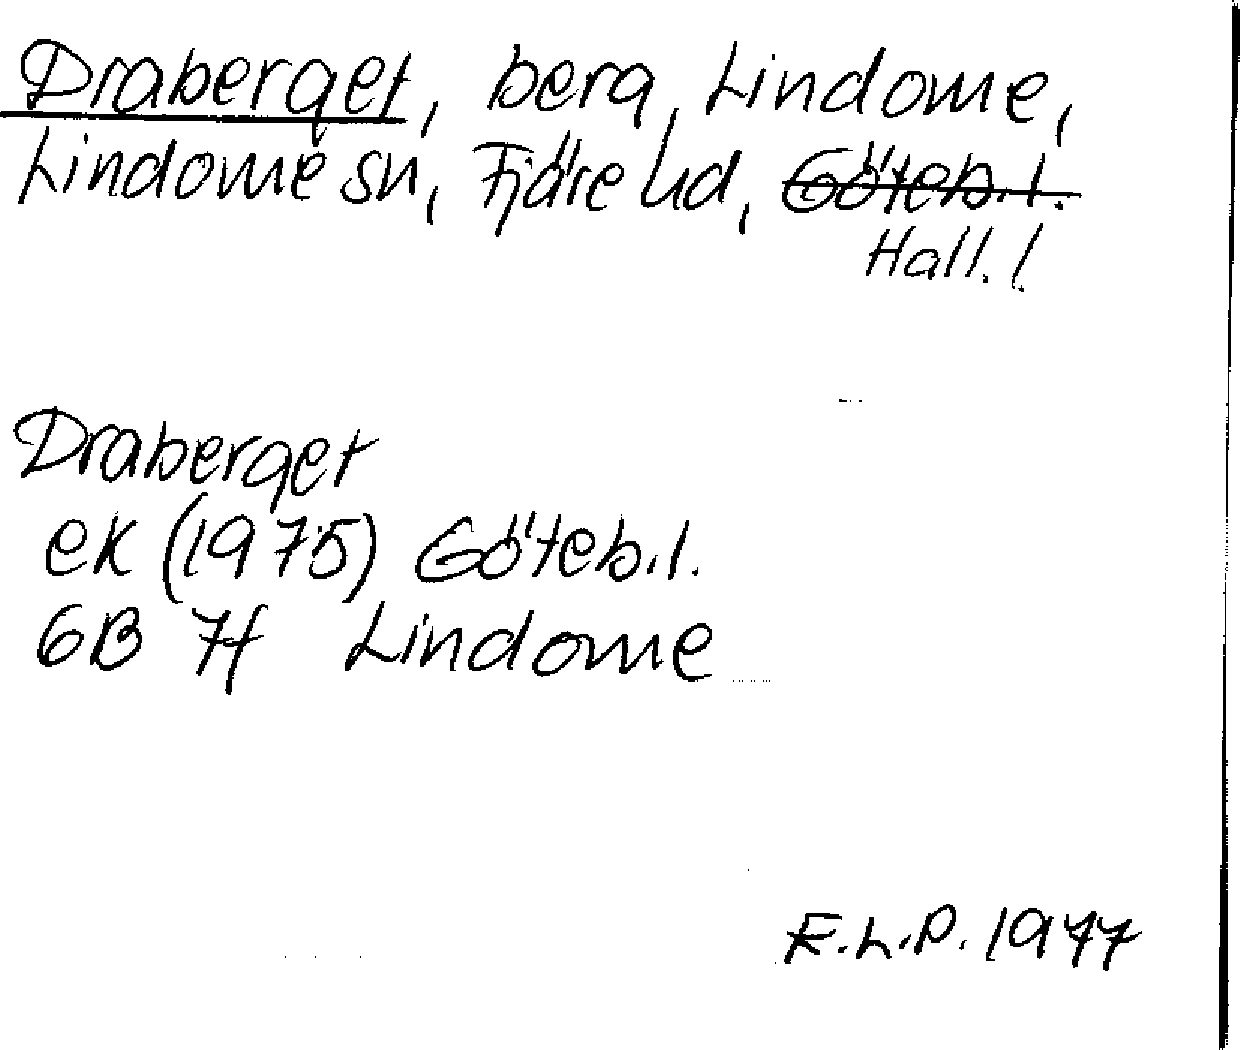 Draberget, berg, Lindome,
Lindome sn, Fjäre hd, Göteb.l.
Hall. l.
Draberget
ek (1975) Göteb.l.
6B 7f Lindome
E.L.P. 1977